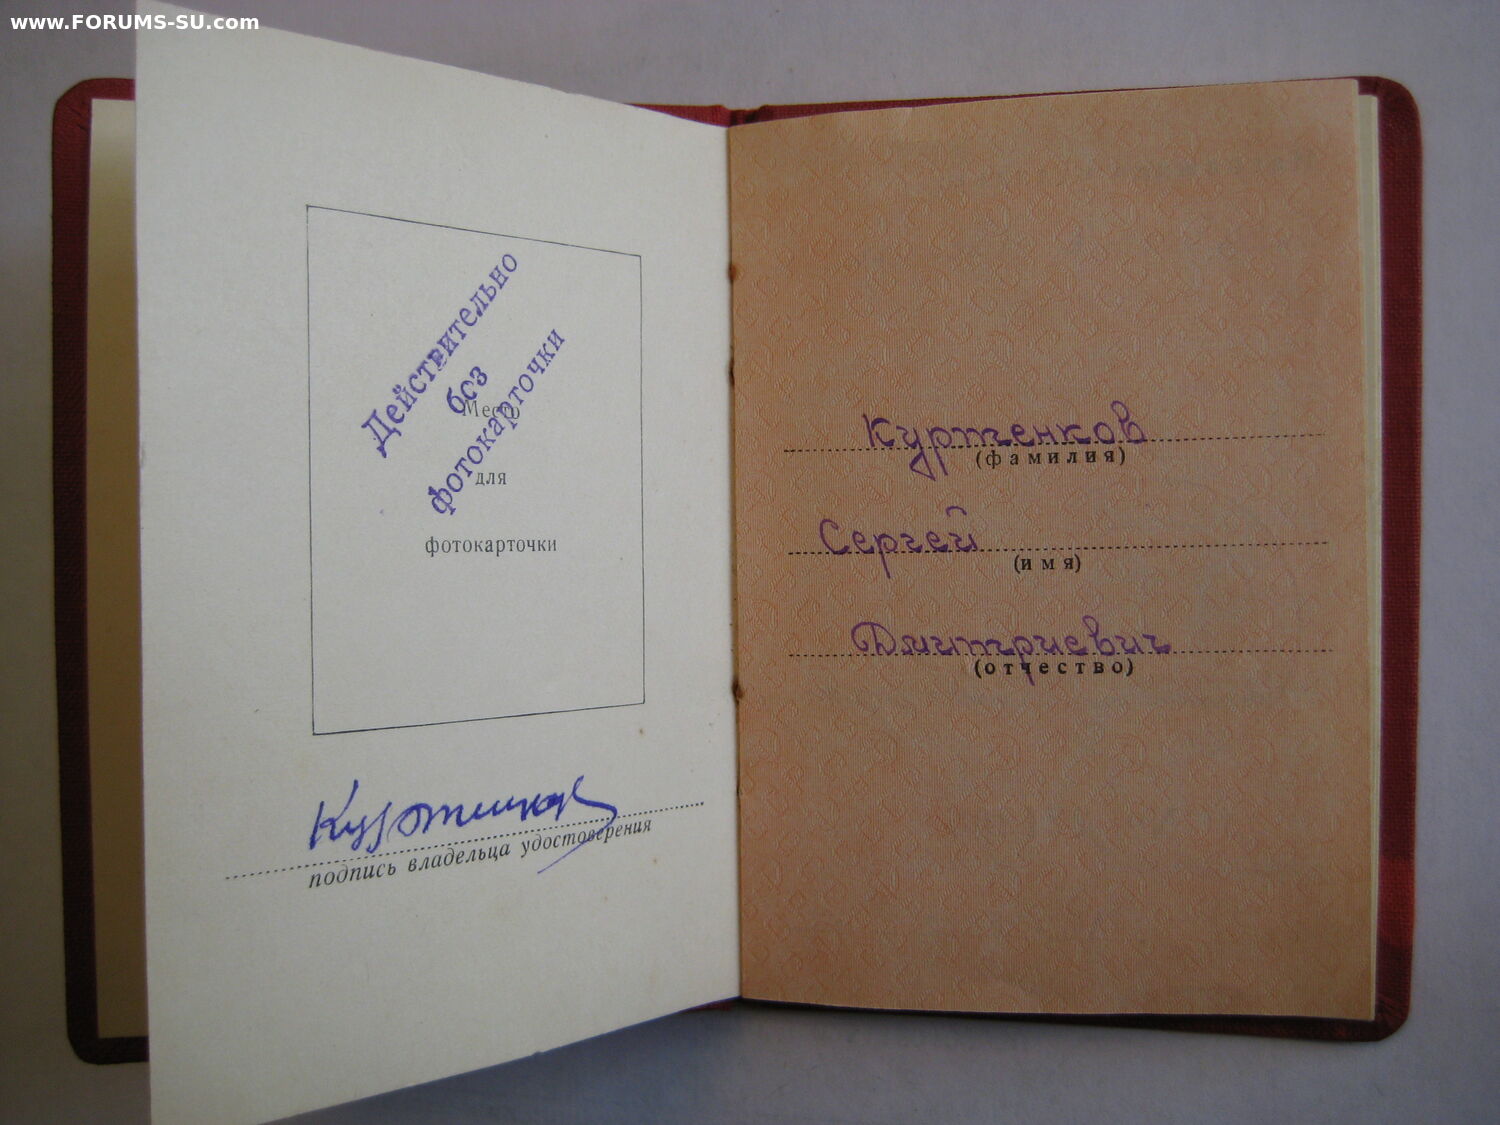 www.FORUMS-SU.com
Действительно
без
фотокарточки
Место
для
фотокарточки
подпись владельца удостоверения
Куртенков
(фамилия)
Сергей
(имя)
Дмитриевич
(отчество)